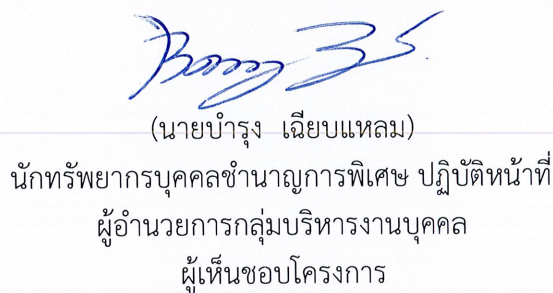 (นายบำรุง เฉียบแหลม)
นักทรัพยากรบุคคลชำนาญการพิเศษ ปฏิบัติหน้าที่
ผู้อำนวยการกลุ่มบริหารงานบุคคล
ผู้เห็นชอบโครงการ